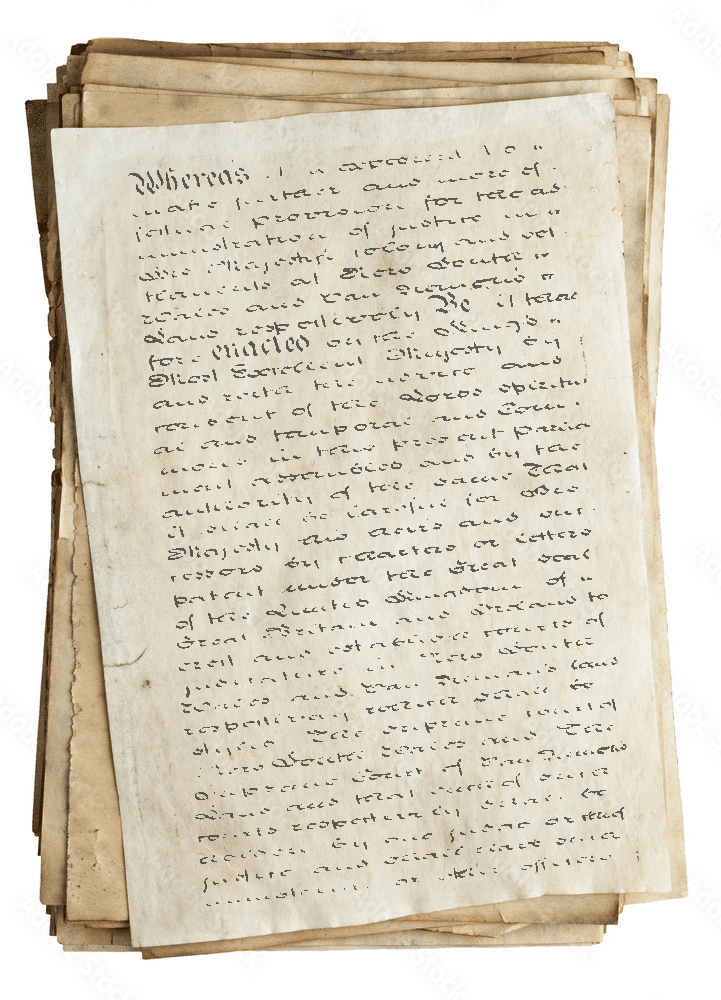 Whereas it is expedient to
make further and more ef-
fectual provision for the ad
ministration of justice in
His Majesty's Colony and set
tlements at New South
Wales and Van Diemens
Land respectively Be it there
fore enacted by the King's
Most Excellent Majesty by
and with the advice and
consent of the Lords Spiritu
al and temporal and Com
mons in this present Parlia
ment assembled and by the
authority of the same That
it shall be lawful for His
Majesty his heirs and suc
cessors by charters or letters
patent under the Great Seal
of the United Kingdom of
Great Britain and Ireland to
erect and establish courts of
judicature in New South
Wales and Van Diemans Land
respectively which shall be
styled The Supreme Court of
New South Wales and The
Supreme Court of Van Diemens
Land and that each of such
courts respectively shall be
holden by one judge or chief
justice and shall have such
ministerial or other officers